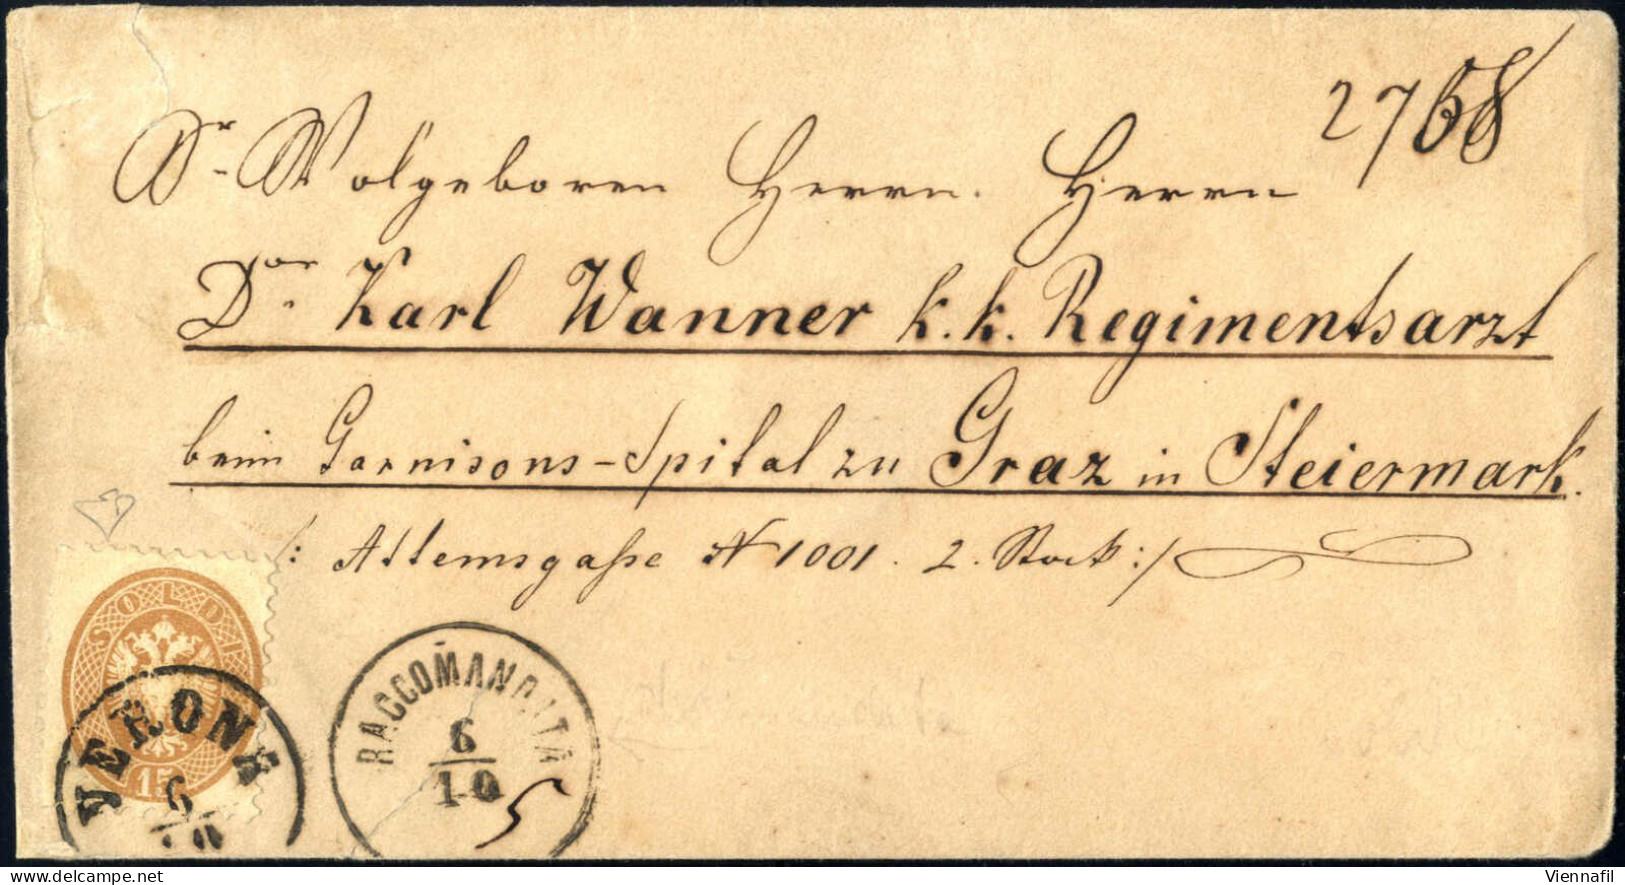 2768
Sr Wolgeboren Herrn. Herrn
Dor. Karl Wanner k. k. Regimentsarzt
beim Garnisons-Spital zu Graz in Steiermark.
/: Attemsgaße N 1001. 2. Stock :/
SOLDI
15
VERONA
6
10
RACCOMANDATA
6
10
5
Viennafil